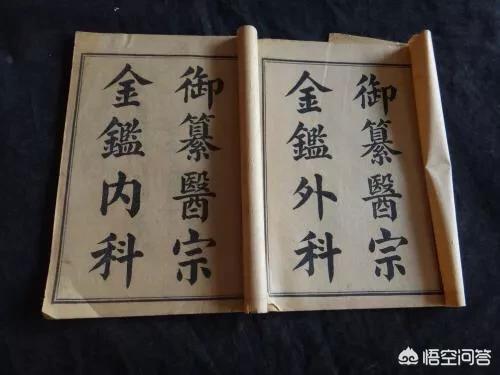 御纂醫宗
金鑑外科
御纂醫宗
金鑑内科
悟空问答